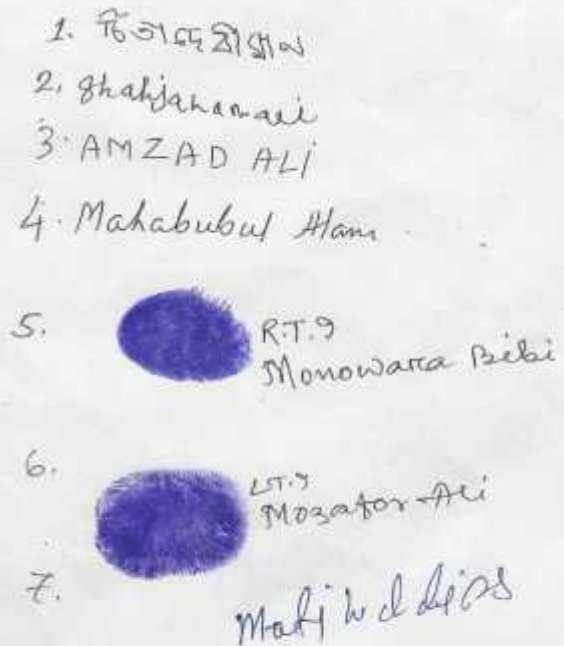 1.
2. Shahjahan ali
3. AMZAD ALI
4. Mahabubul Alam
5. R.T.I
Monowara Bibi
6. L.T.I
Mozafor Ali
7.